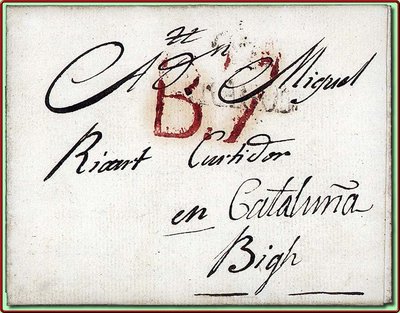 A Dn Miguel
B.7
Ricart Curtidor
en Cataluña
Bigh